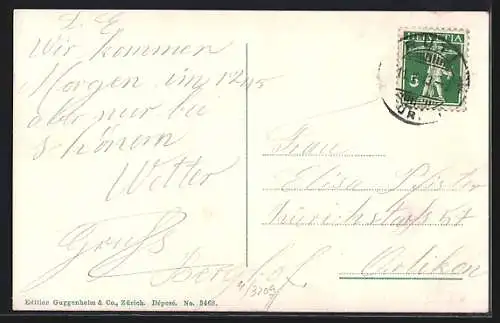 L. E.
Wir kommen
Morgen um 1215
aber nur bei
schönem
Wetter
Gruss
HELVETIA
5
Frau
Elisa Pfister
Zürichstrasse 57
Oerlikon
Edition Guggenheim & Co., Zürich. Déposé. No. 5468.